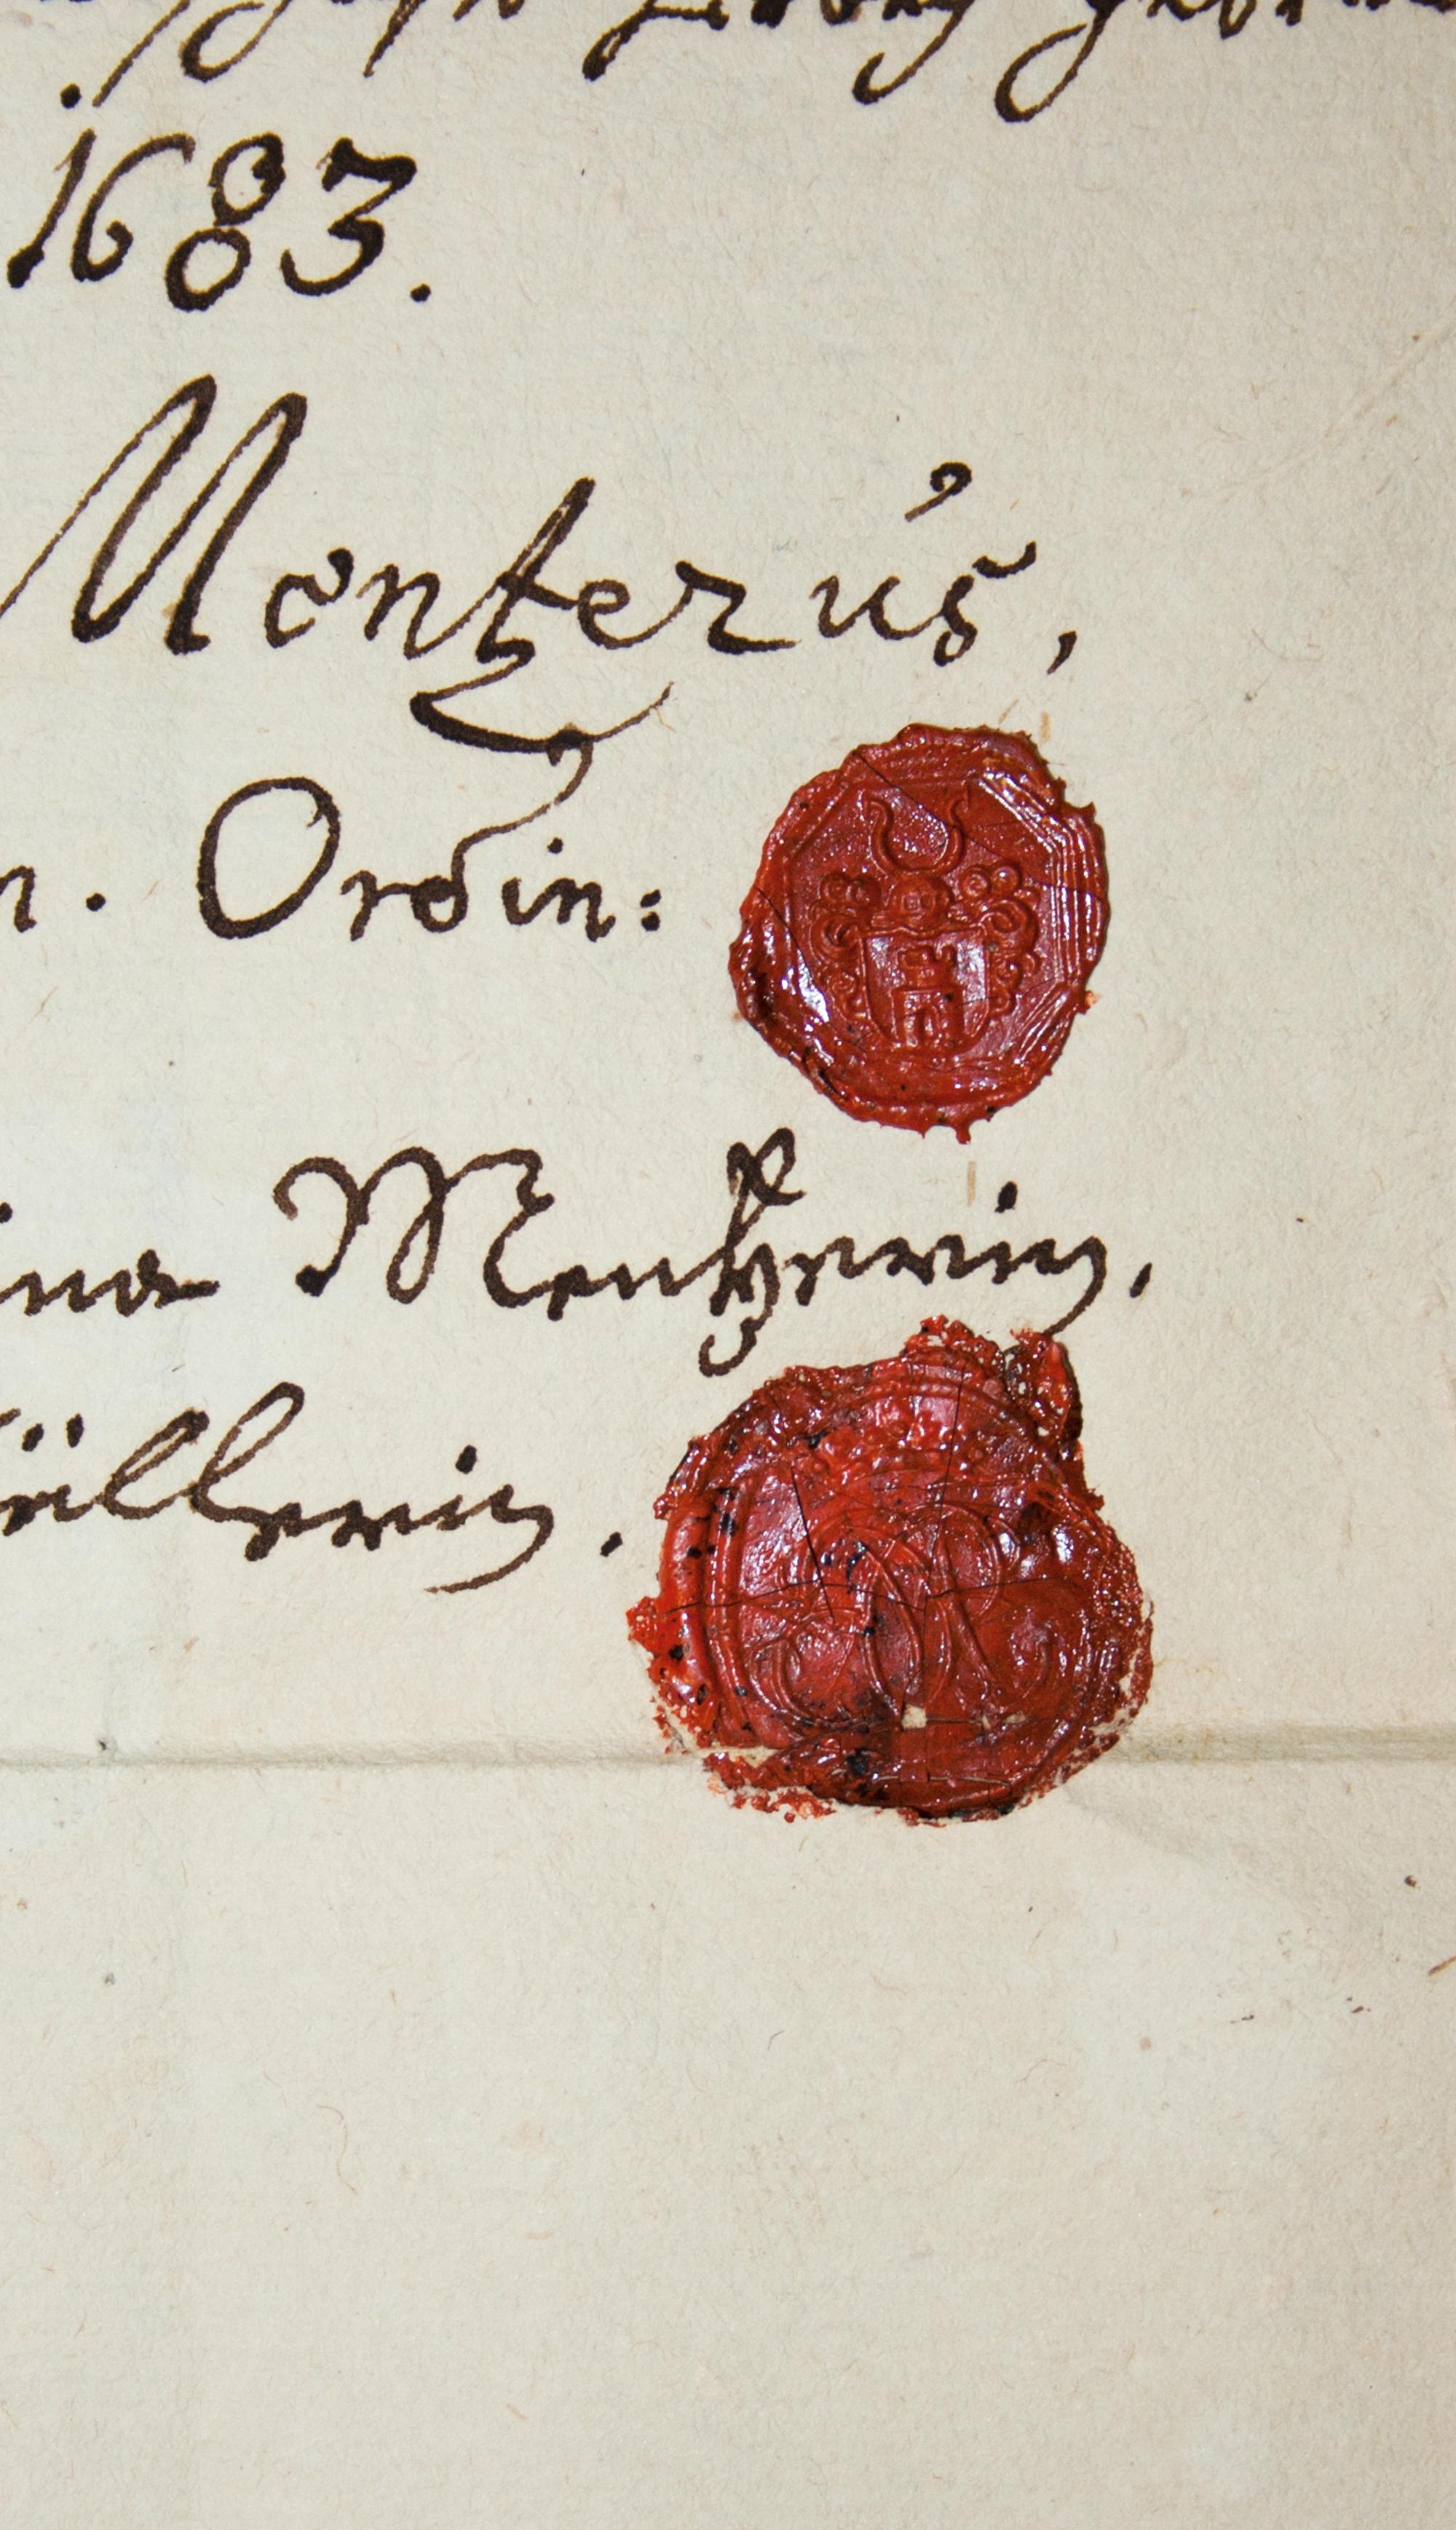 1683.
Mentzerus,
n. Ordin:
ina Mentzerin,
üllerin.